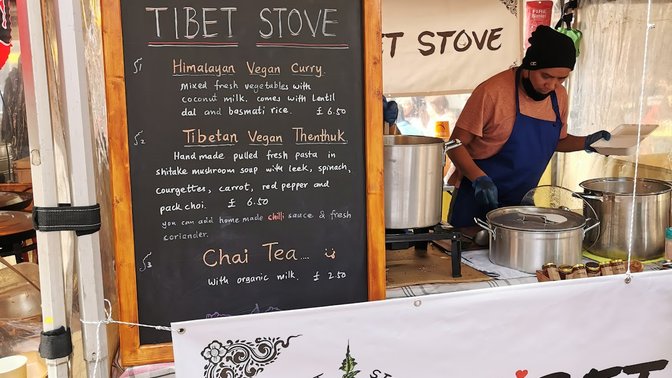 TIBET STOVE
§1 Himalayan Vegan Curry
mixed fresh vegetables with
coconut milk. comes with lentil
dal and basmati rice. £ 6.50
§2 Tibetan Vegan Thenthuk
Hand made pulled fresh pasta in
shitake mushroom soup with leek, spinach,
courgettes, carrot, red pepper and
pack choi. £ 6.50
you can add home made chilli sauce & fresh
coriander.
§3 Chai Tea....
with organic milk. £ 2.50
ET STOVE